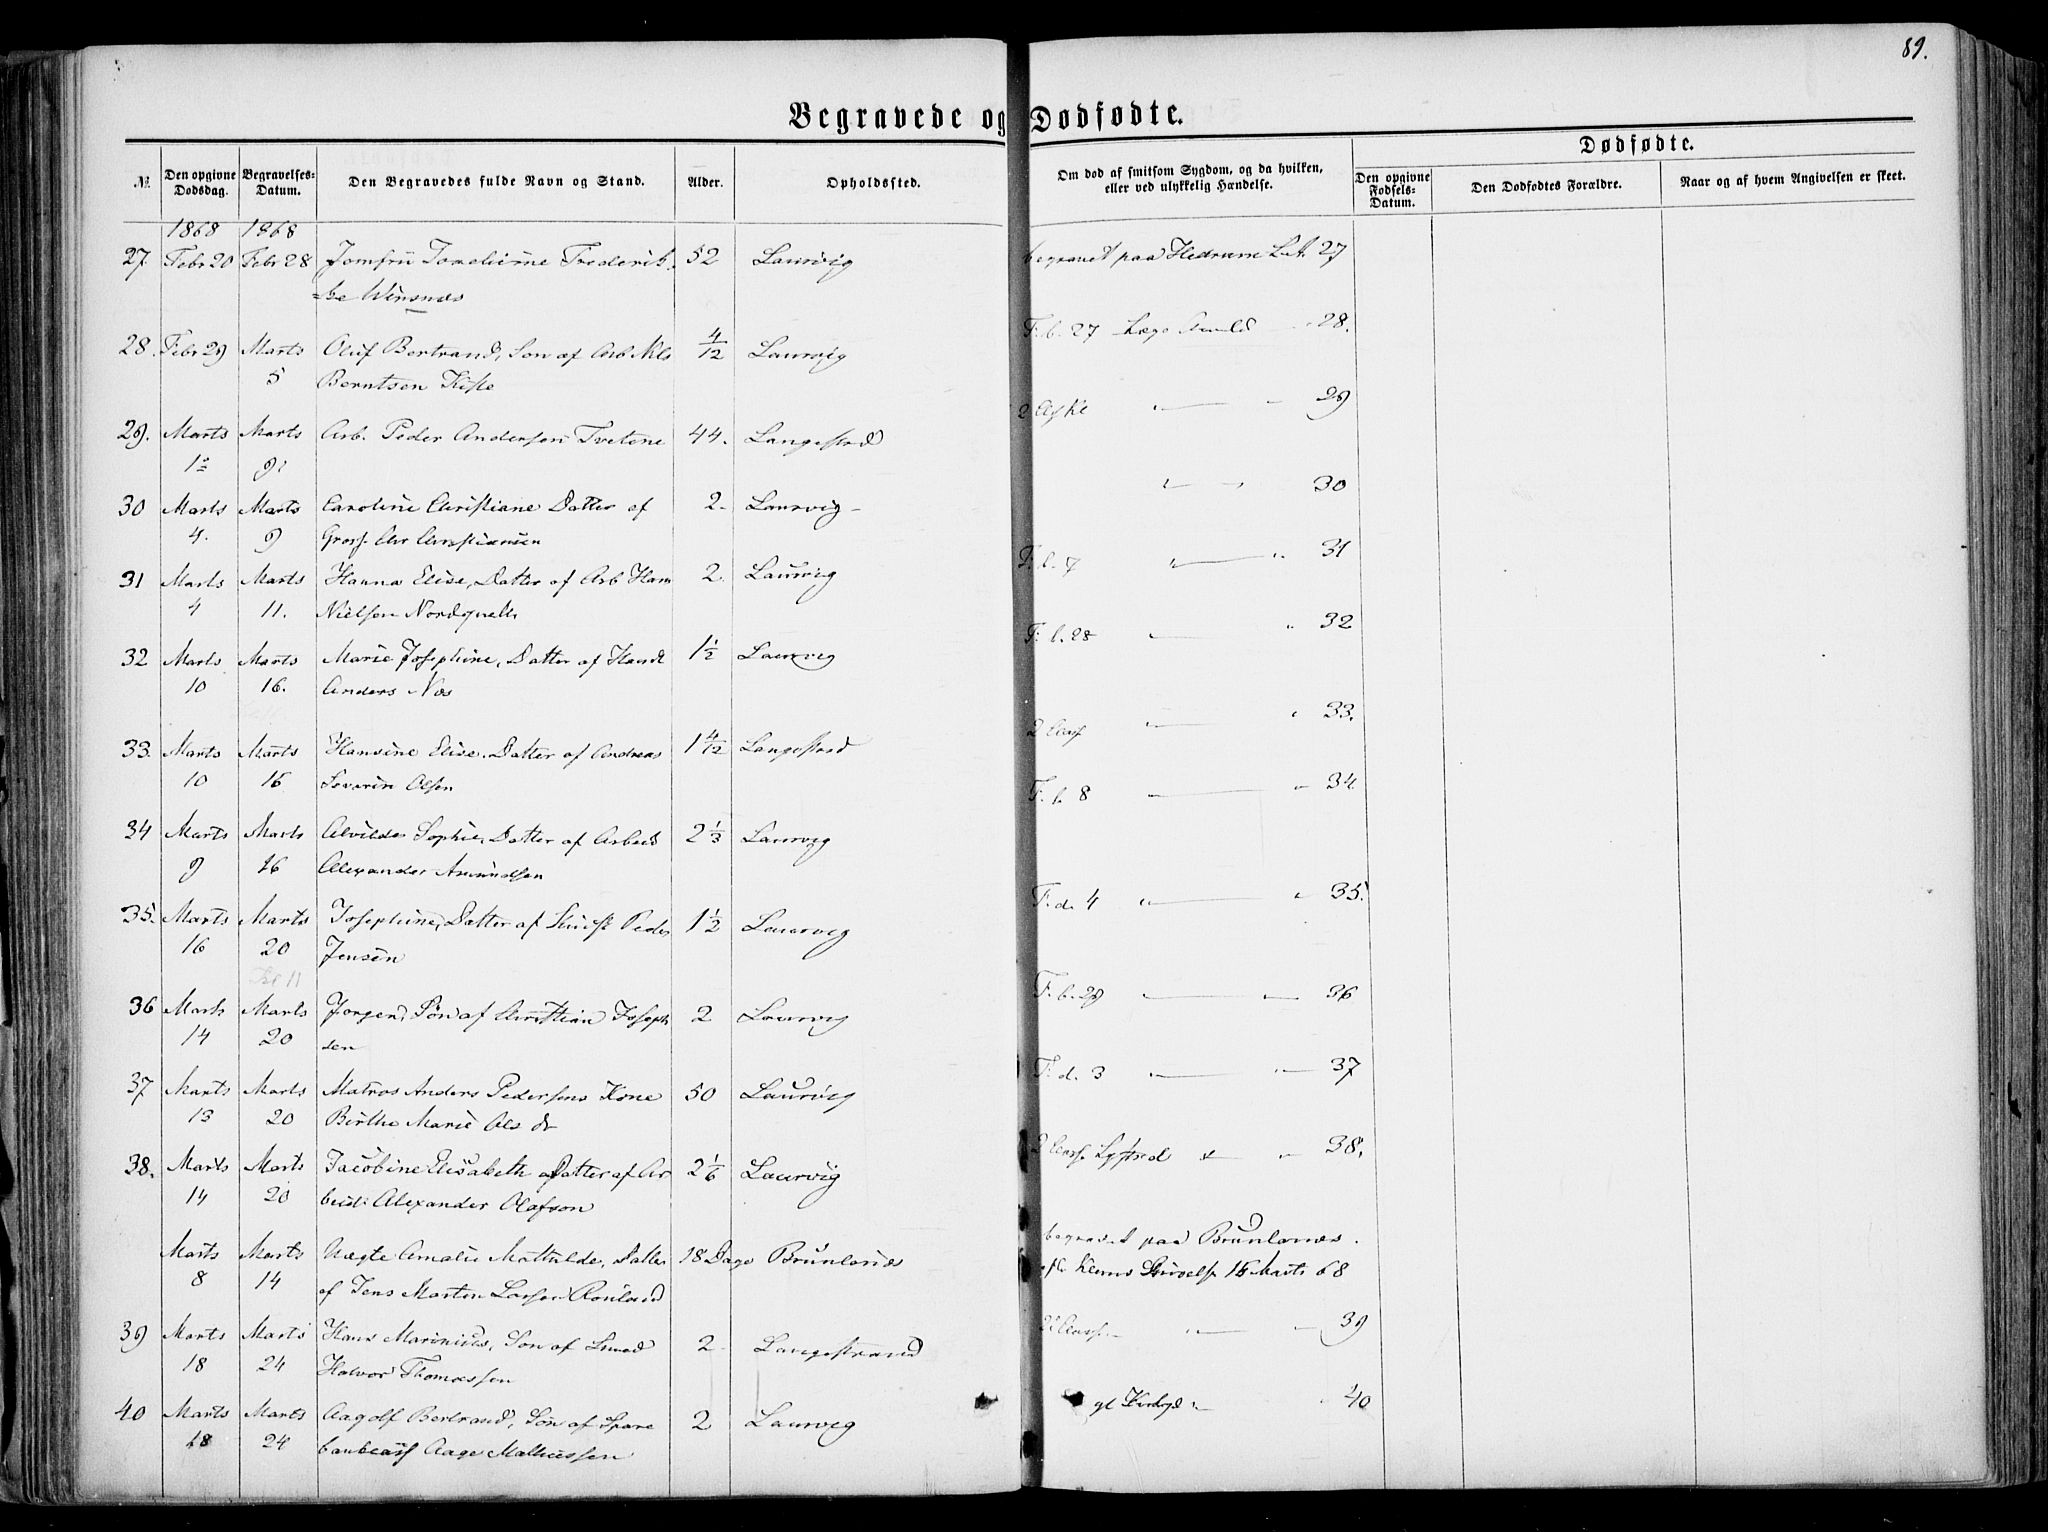 89.
Begravede og Dødfødte.
Dødfødte.
№ Den opgivne Dodsdag. Begravelses-Datum. Den Begravedes fulde Navn og Stand. Alder. Opholdssted. Om dod af smitsom Sygdom, og da hvilken, eller ved ulykkelig Hændelse. Den opgivne Fodsels-Datum. Den Dodfodtes Forældre. Naar og af hvem Angivelsen er skeet.
1868 1868
27. Febr 20 Febr 28 Jomfru Frederik= 52 Laurvig begravet paa Hedrum 27
=ke Winsnæs
28. Febr 29 Marts Oluf Bertrand, Søn af Arb. Nils 4/12 Laurvig F. b. 27 28.
5 Berntsen Kiste
29. Marts Marts Arb. Peder Andersen Tvetene 44. Langestrd 29
1 9
30 Marts Marts Caroline Christiane Datter af 2. Laurvig " " 30
4. 9 Chr Christiansen
31 Marts Marts Hanna Elise, Datter af Arb Hans 2. Laurvig F. b. 7 " " 31
4 11. Nielsen
32 Marts Marts Marie Josephine, Datter af 1½ Laurvig F. b. 28 " " 32
10 16. Anders Næs
33. Marts Marts Hansine Elise. Datter af Andreas 1 4/12 Langestrd 2 Class " " 33.
10 16 Severin Olsen
34 Marts Marts Alvilde Sophie, Datter af Arbeid 2⅓ Laurvig F. b. 8 " " 34
9 16 Alexander Amundsen
35. Marts Marts Josephine, Datter af Peder 1½ Laurvig F. d. 4 " " 35.
16 20 Jensen
36 Marts Marts Jørgen, Søn af Christian Joseph 2 Laurvig F. b. 29 " 36
14 20 sen
37 Marts Marts Matros Anders Pedersens Kone 50 Laurvig F. d. 3 " " 37
13 20 Birthe Marie Ols dr
38. Marts Marts Jacobine Elisabeth Datter af Ar 2 1/6 Laurvig 2 Class " 38.
14 20 beid. Alexander Olafson
Marts Marts Uægte Amalie Mathilde, Datter 18 Dage Brunlanes begravet paa Brunlanes.
8 14 af Jens Martin Marts 68
39 Marts Marts Hans Marinius, Søn af Smed 2 Langestrand 2 Class " 39
18 24 Halvor Thomassen
40 Marts Marts Aagolf Bertrand, Søn af Spare 2 Laurvig gl 40
18 24 bankcass Aage Mathiessen